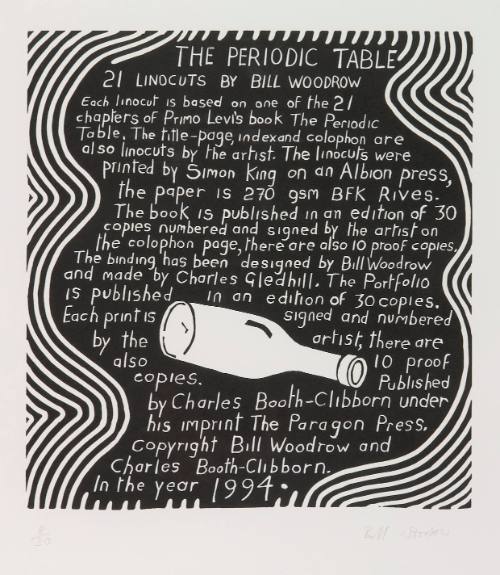 THE PERIODIC TABLE
21 LINOCUTS BY BILL WOODROW
Each linocut is based on one of the 21
chapters of Primo Levi's book The Periodic
Table. The title-page, index and colophon are
also linocuts by the artist. The linocuts were
printed by Simon King on an Albion press,
the paper is 270 gsm BFK Rives.
The book is published in an edition of 30
copies numbered and signed by the artist on
the colophon page, there are also 10 proof copies.
The binding has been designed by Bill Woodrow
and made by Charles Gledhill. The Portfolio
is published in an edition of 30 copies.
Each print is signed and numbered
by the artist, there are
also 10 proof
copies. Published
by Charles Booth-Clibborn under
his imprint The Paragon Press.
Copyright Bill Woodrow and
Charles Booth-Clibborn.
In the year 1994.
Bill Woodrow